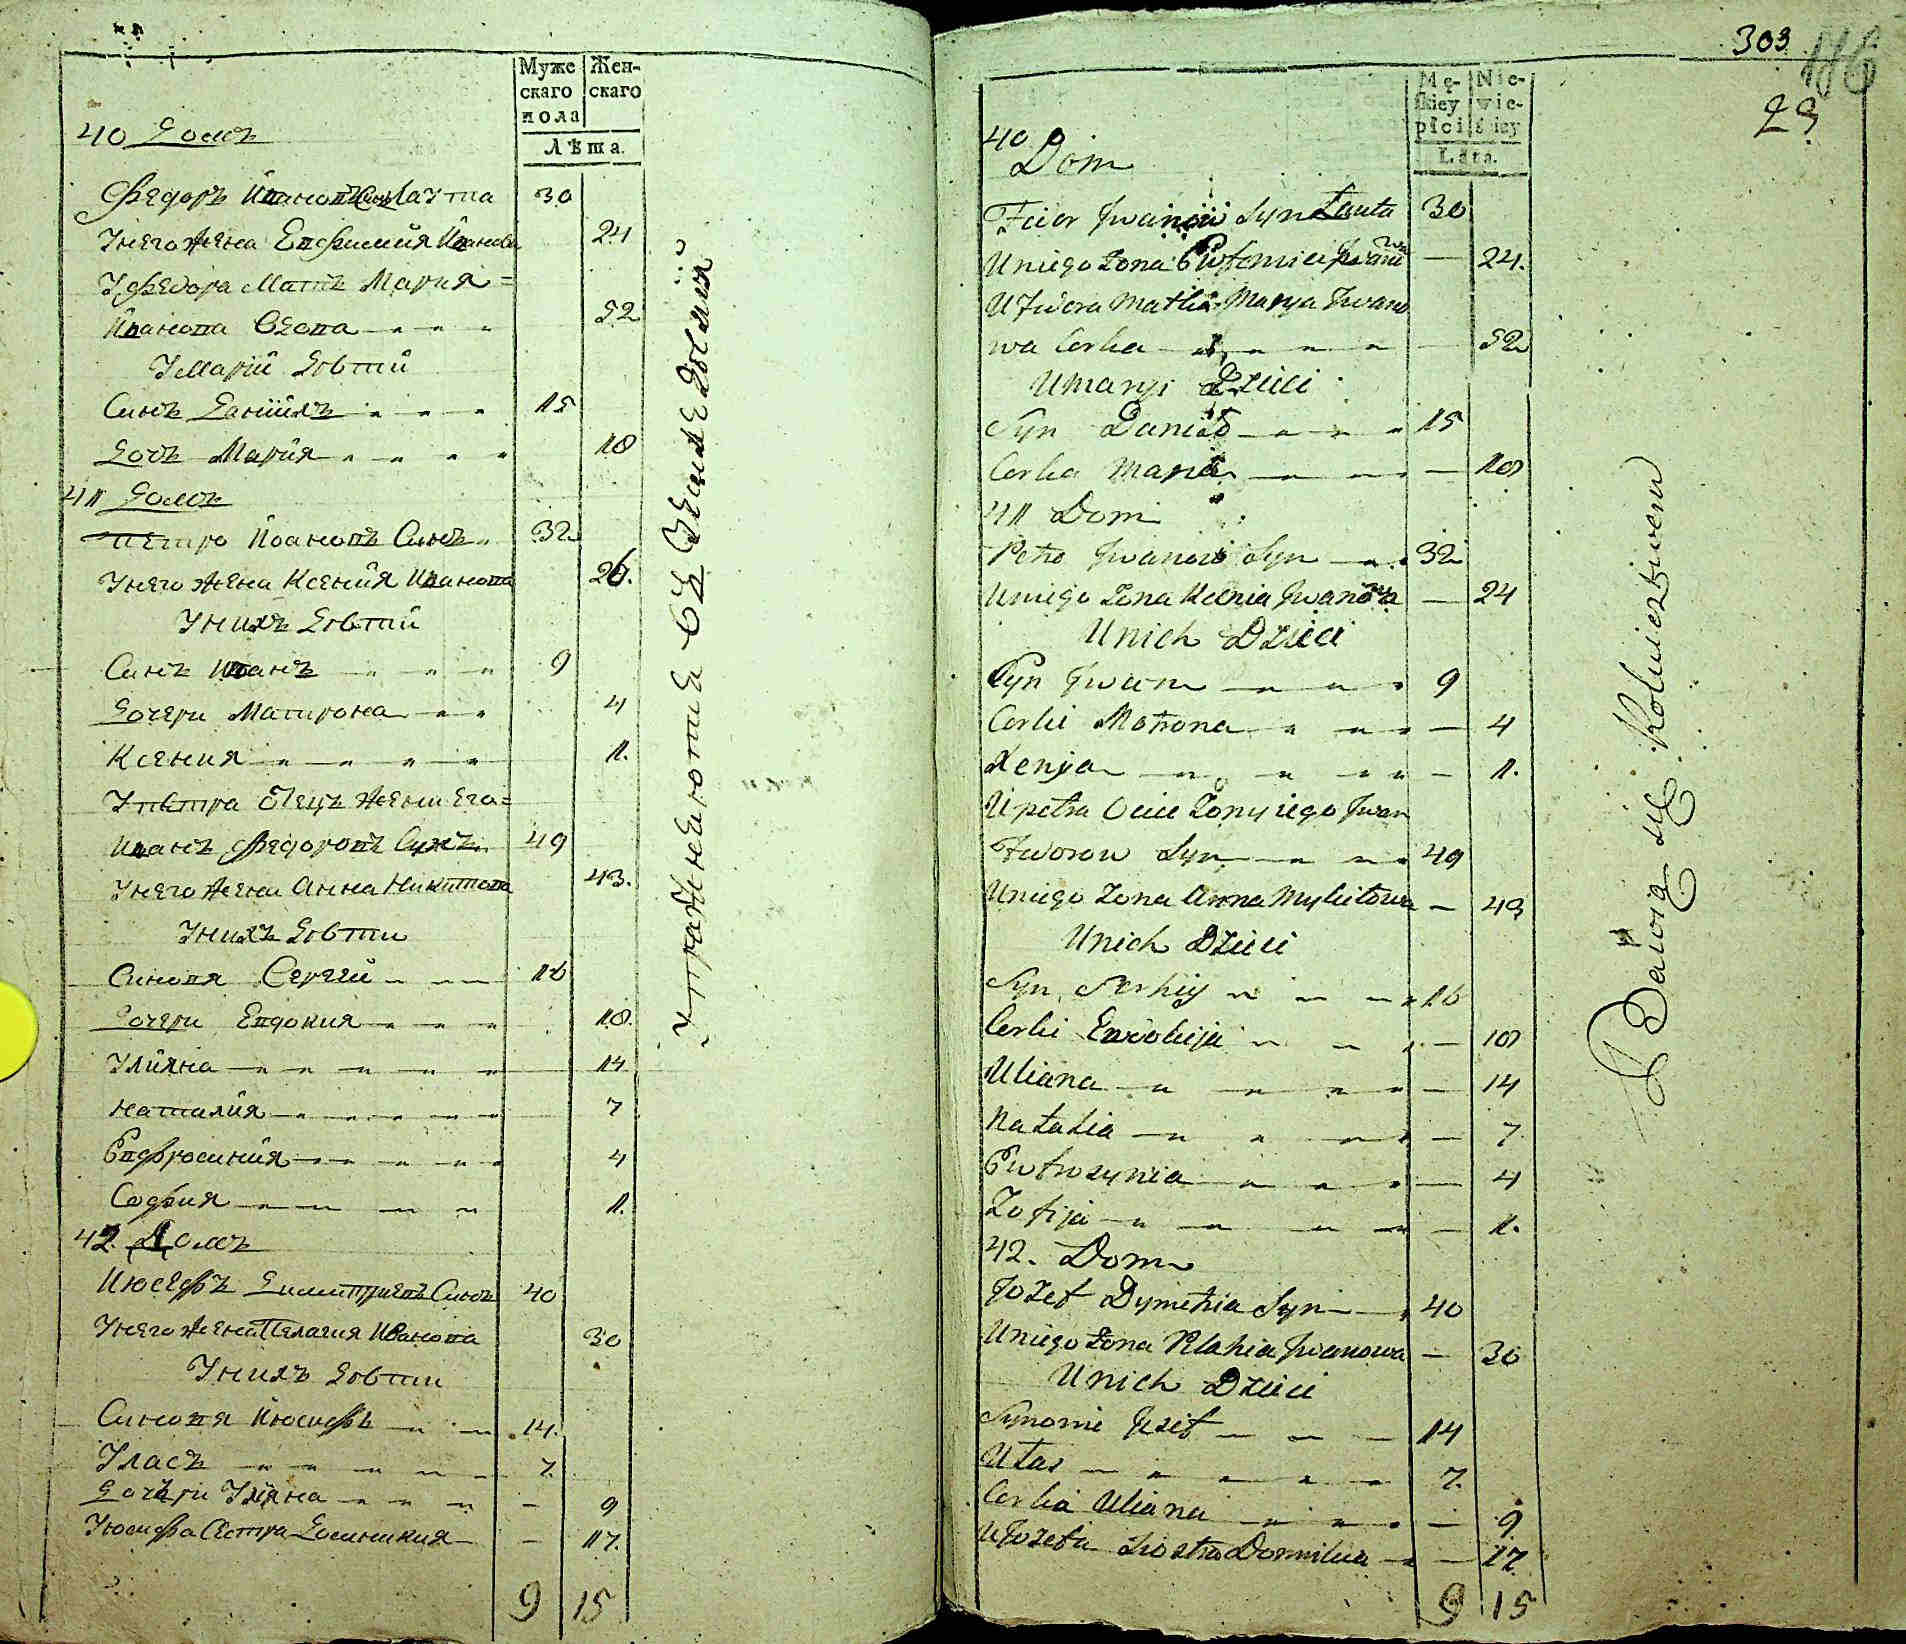 Муже
скаго
пола
Жен-
скаго
Лѣта.
40 Домъ
Федоръ Ивановъ Синъ Лаута 30
У него жена Евфимия Иванова 24
У Федора Мать Мария =
Иванова Вдова 52
У Марии Дѣти
Синъ Данїилъ 15
Дочь Мария 10
41 Домъ
Петро Ивановъ Синъ 32
У него жена Ксения Иванова 26.
У нихъ Дѣти
Синъ Иванъ 9
Дочери Матрона 4
Ксения 1.
У Петра Отецъ жени его =
Иванъ Федоровъ Синъ 49
У него жена Анна Никитова 43.
У нихъ Дѣти
Синовя Сергей 16
Дочери Евдокия 10.
Улияна 14
Наталия 7
Евфросиния 4
София 1.
42 Домъ
Июсефъ Димитриевъ Синъ 40
У него жена Пелагия Иванова 30
У нихъ Дѣти
Синовя Июсифъ 14.
Уласъ 7.
Дочери Улияна 9
У Июсифа Сестра Домникия 17.
9 15
303
116
23
Mę-
skiey
płci
Nie-
wie-
ściey
Lata.
40
Dom
Fedor Jwanow Syn Łauta 30
U niego Zona Ewfemia Jwanowa 24.
U Fedora Matka Marya Jwano
wa Corka 52
U Maryi Dzieci
Syn Daniło 15
Corka Maria 10
41 Dom
Petro Jwanow Syn 32
U niego Zona Xenia Jwanowa 24
U nich Dzieci
Syn Jwan 9
Corki Motrona 4
Xenja 1.
U petra Ociec Zony iego Jwan
Fedorow Syn 49
U niego Zona Anna Mykitowa 43
U nich Dzieci
Syn Serhiy 16
Corki Ewdokija 10
Uliana 14
Natalia 7
Ewfrozynia 4
Zofija 1.
42. Dom
Jozef Dymetria Syn 40
U niego Zona Pelahia Jwanowa 30
U nich Dzieci
Synowie Jozef 14
Ułas 7.
Corka Uliana 9
U Jozefa Siostra Domnikia 17
9 15